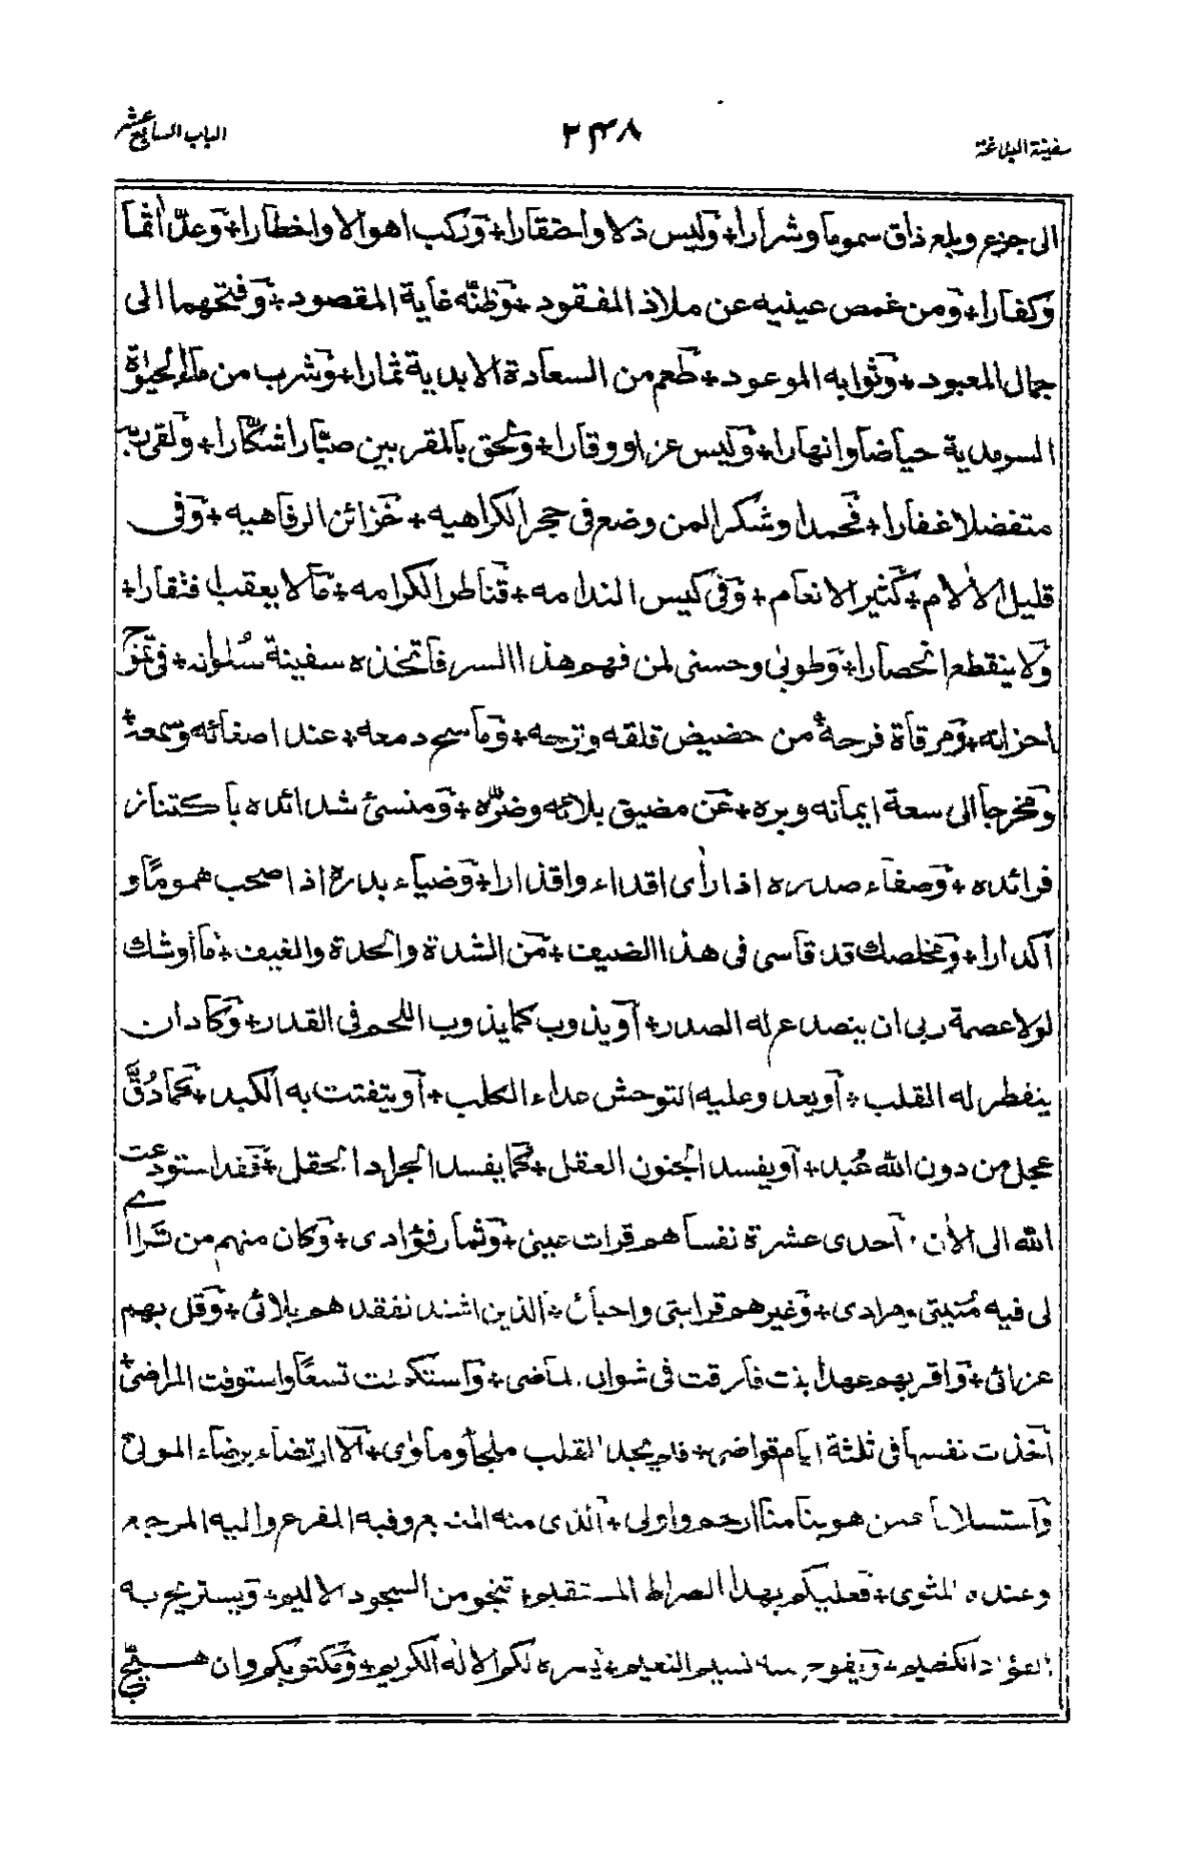 سفينة البلاغة
٢٣٨
الباب السابع عشر
الى جزع وبلع ذاق سموما وشرارا+ ولبس ذلا واحتقارا+ وركب اهوالا واخطارا+ وعدّ اثما
وكفارا+ ومن غمص عينيه عن ملاذ المفقود+ وظنّه غاية المقصود+ وفتحهما الى
جمال المعبود+ وثوابه الموعود+ طعم من السعادة الابدية ثمارا+ وشرب من ماء الحيٰوة
السرمدية حياضا وانهارا+ ولبس عزا ووقارا+ ولحق بالمقربين صبّارا شكّارا+ ولقى ربّه
متفضلا غفارا+ فحمدا وشكرا لمن وضع فى حجر الكراهيه+ خزائن الرفاهيه+ وفى
قليل الألام+ كثير الانعام+ وفى كيس الندامه+ قناطر الكرامه+ مالا يعقب افتقارا+
ولا ينقطع انحصارا+ وطوبى وحسنى لمن فهم هذا السر فاتخذه سفينة سُلوانه+ فى تموّج
احزانه+ ومرقاة فرحه+ من حضيض قلقه وترحه+ وماسح دمعه+ عند اصفائه وسمعه+
ومخرجا الى سعة ايمانه وبره+ عن مضيق بلائه وضرّه+ ومنسئ شدائده باكتناز
فرائده+ وصفاء صدره اذا رأى اقداء واقذارا+ وضياء بدره اذا صحب هموما و
أكدارا+ ومخلصك قد قاسى فى هذا الضيف+ من الشدة والحدة والغيف+ ما أوشك
لولا عصمة ربى ان ينصدع له الصدر+ أو يذوب كما يذوب اللحم فى القدر+ وكاد ان
ينفطر له القلب+ أو يعدو عليه التوحش عداء الكلب+ أو يتفتت به الكبد+ كما دُقَّ
عجل من دون الله عُبد+ أو يفسد الجنون العقل+ كما يفسد الجراد الحقل+ فقد استودعت
الله الى الأن+ أحدى عشرة نفسا هم قرات عينى+ وثمار فؤادى+ وكان منهم من تراأى
لى فيه مُنيتى ومرادى+ وغيرهم قرابتى واحبائى+ الذين اشتد نفقدهم بلائى+ وقل بهم
عزائى+ واقربهم عهدا بنت فارقت فى شوال الماضى+ واستكملت تسعا واستوفت المراضى+
أخذت نفسها فى ثلثة ايام قواضى+ فلم يجد القلب ملجأ ومأوى+ الا ارتضاء برضاء المولى+
واستسلاما عمن هو بنا منا ارحم واولى+ الذى منه المنبع وفيه المفزع واليه المرجع
وعنده المثوى+ فعليكم بهذا الصراط المستقيم+ تنجو من السجود الاليم+ ويستريح به
الفؤاد الكظيم+ ويفوح منه نسيم النعيم+ يسره لكم الاله الكريم+ ومكتوبكم وان هيّج